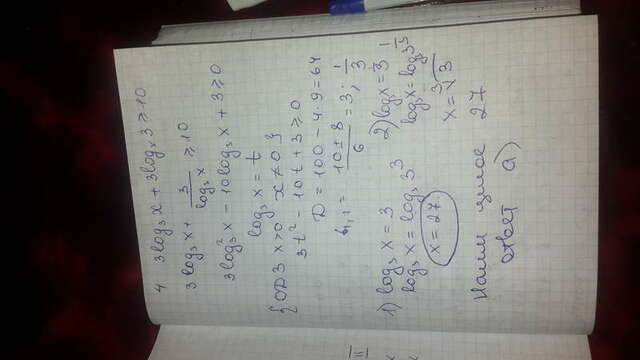 4 3log₃x + 3logₓ3 ≥ 10
3log₃x + 3/log₃x ≥ 10
3log₃²x - 10log₃x + 3 ≥ 0
log₃x = t
{ОДЗ x>0 x≠0}
3t² - 10t + 3 ≥ 0
D = 100 - 4·9 = 64
t₁,₂ = (10 ± 8)/6 = 3; 1/3
1) log₃x = 3
log₃x = log₃3³
x = 27
2) log₃x = 1/3
log₃x = log₃3^(1/3)
x = ³√3
целое 27
ответ а)